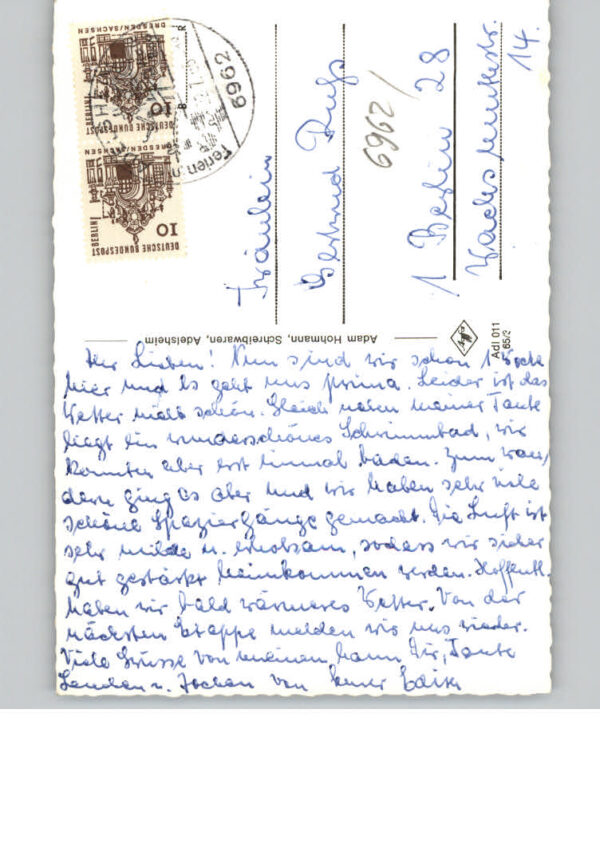 DEUTSCHE BUNDESPOST
BERLIN
10
DRESDEN/SACHSEN
DEUTSCHE BUNDESPOST
BERLIN
10
DRESDEN/SACHSEN
6962
Ferien
6962/
Fräulein
Gertrud
1 Berlin 28
14.
Adam Hohmann, Schreibwaren, Adelsheim
Agfa
Adl 011
65/3
Ihr Lieben! Nun sind wir schon 1 Woche
hier und es geht uns prima. Leider ist das
Wetter nicht schön. Gleich neben meiner Tante
liegt ein wunderschönes Schwimmbad, wir
konnten aber erst einmal baden. Zum wan/
dern ging es aber und wir haben sehr viele
schöne Spaziergänge gemacht. Die Luft ist
sehr milde u. erholsam, sodass wir sicher
gut gestärkt heimkommen werden. Hoffentl.
haben wir bald wärmeres Wetter. Von der
nächsten Etappe melden wir uns wieder.
Viele Grüsse von meinem Mann Dir, Tante
u. Jochen von Eurer Edith